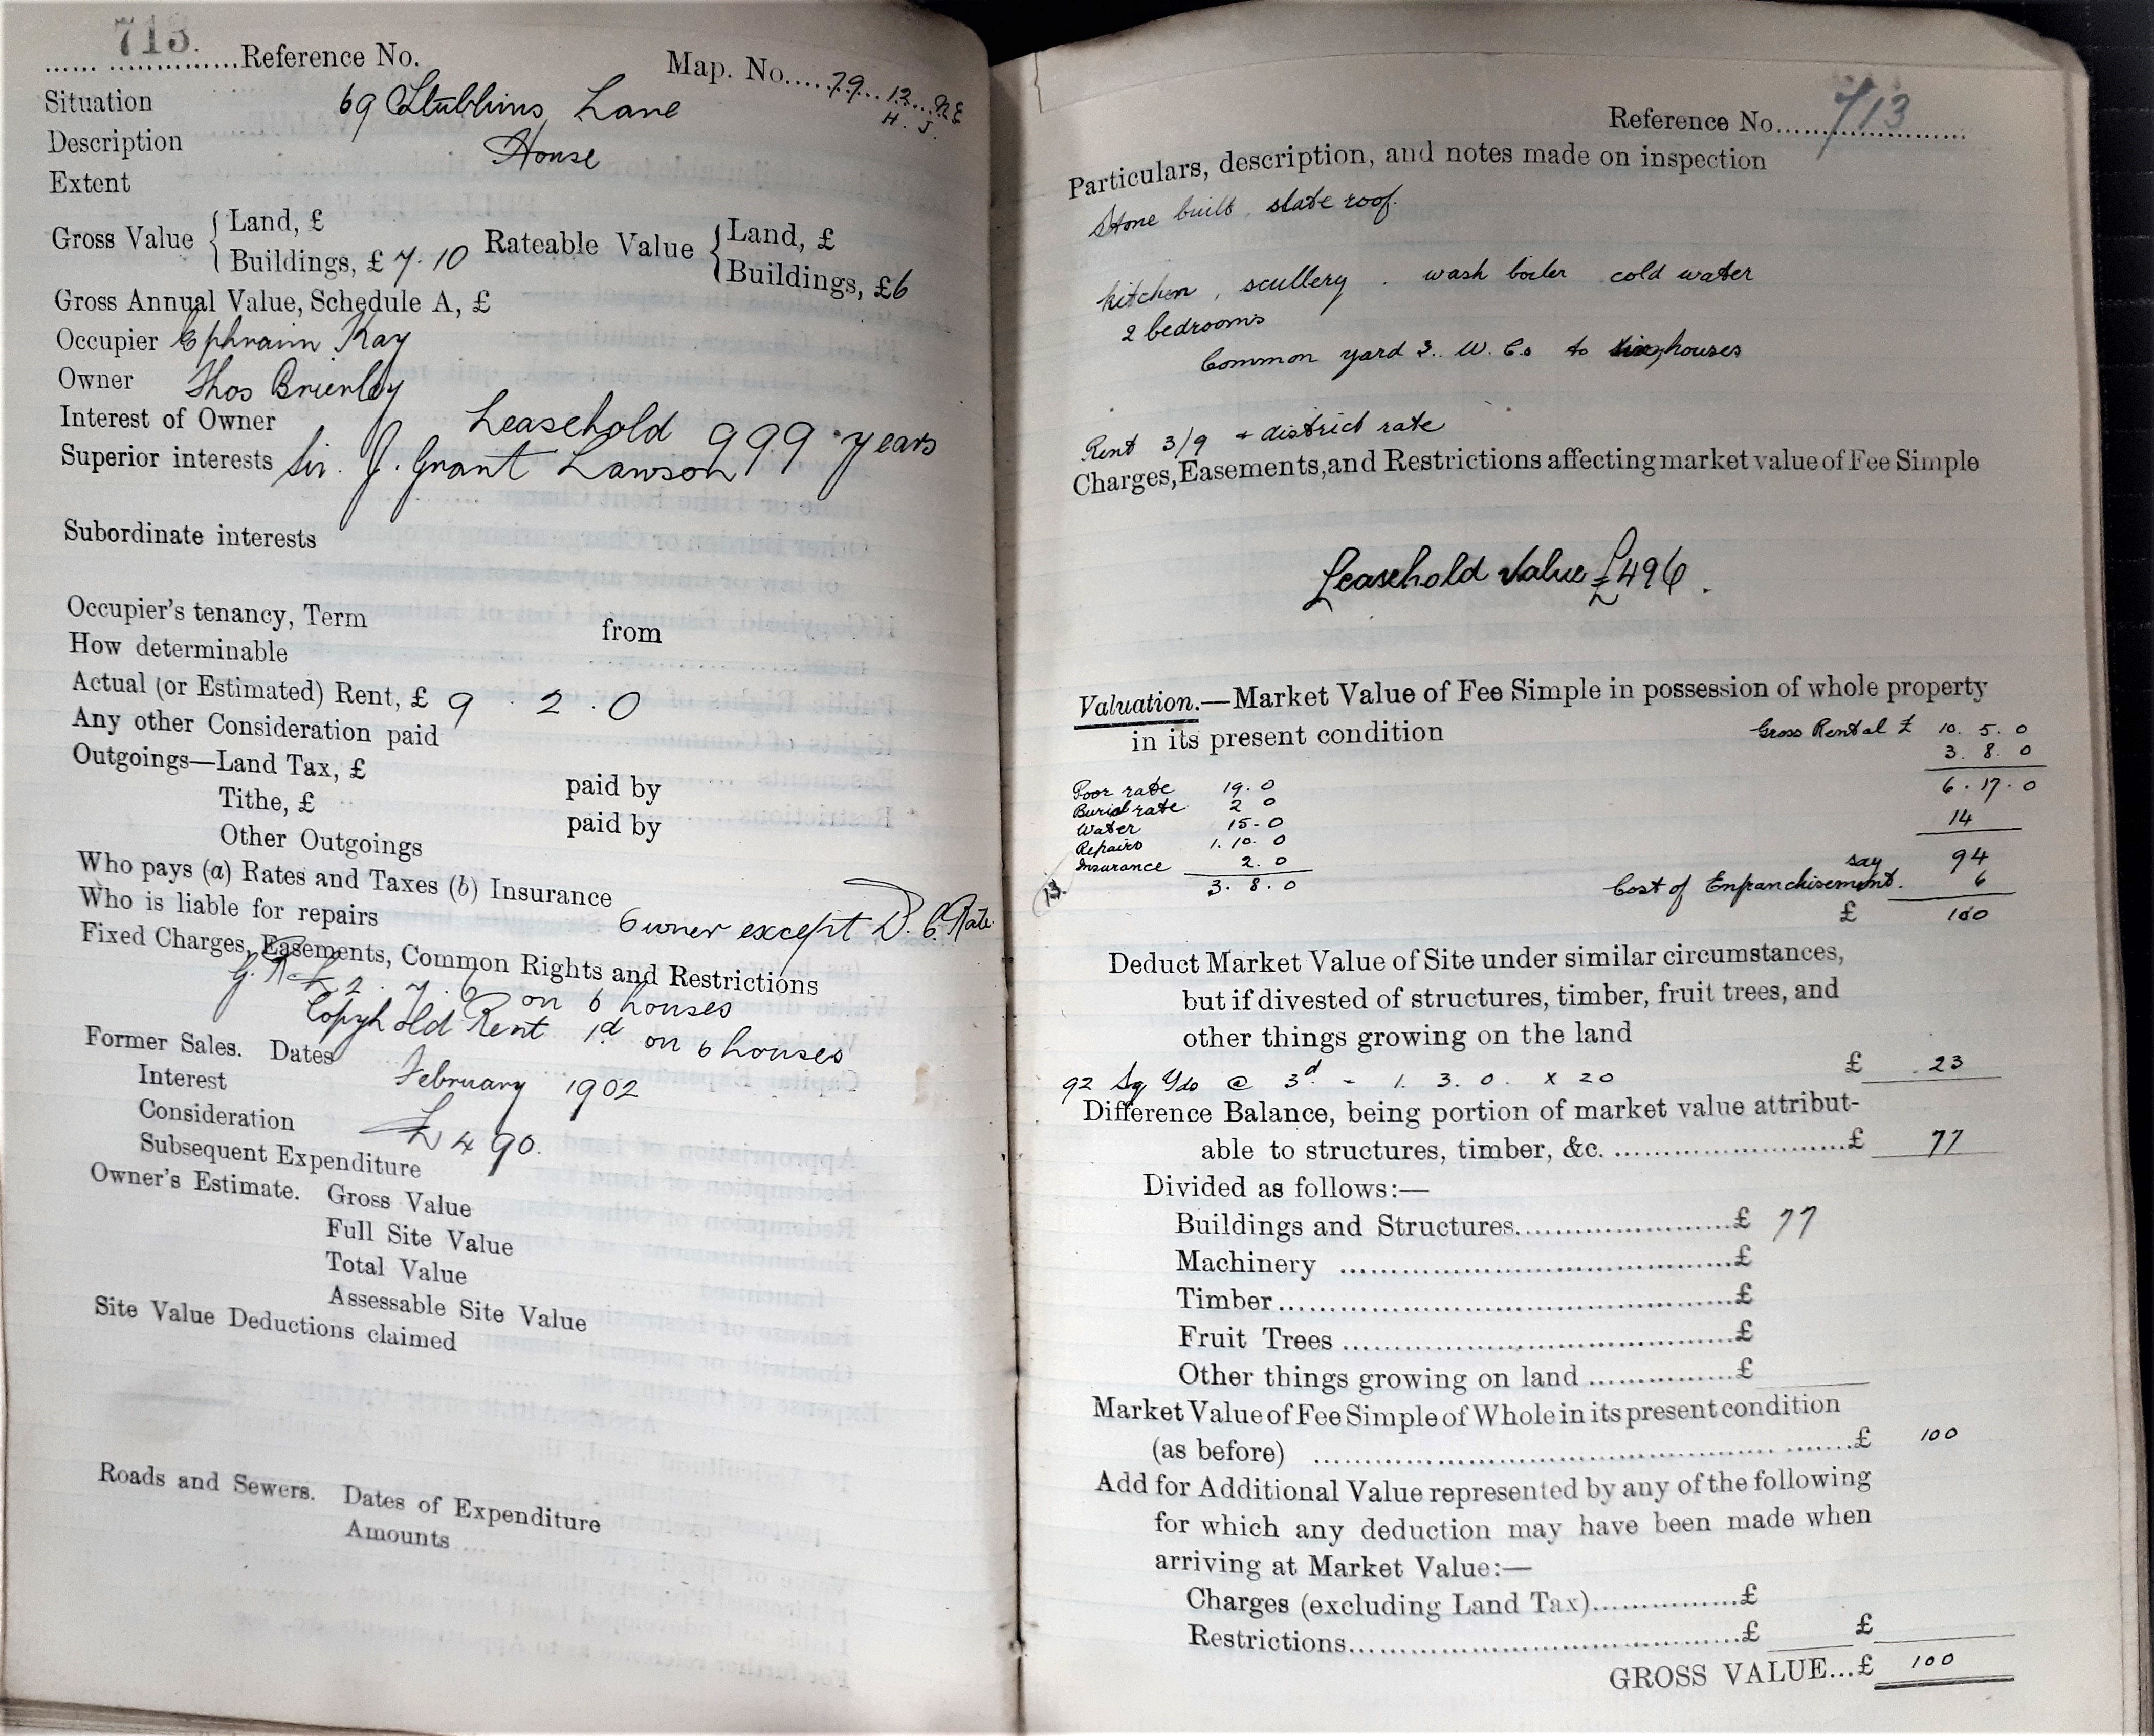 713.
Reference No. Map. No. 79. 12. NE
H. J.
Situation 69 Stubbins Lane
Description House
Extent
Gross Value { Land, £ Rateable Value { Land, £
Buildings, £ 7.10 Buildings, £6
Gross Annual Value, Schedule A, £
Occupier Ephraim Kay
Owner Thos Brierley
Interest of Owner Leasehold 999 years
Superior interests Sir. J. Grant Lawson 999 years
Subordinate interests
Occupier's tenancy, Term from
How determinable
Actual (or Estimated) Rent, £ 9 . 2 . 0
Any other Consideration paid
Outgoings—Land Tax, £ paid by
Tithe, £ paid by
Other Outgoings
Who pays (a) Rates and Taxes (b) Insurance
Who is liable for repairs Owner except D. C. Rate
Fixed Charges, Easements, Common Rights and Restrictions
G. R. £2. 7. 6 on 6 houses
Copyhold Rent 1d on 6 houses
Former Sales. Dates February 1902
Interest
Consideration £490.
Subsequent Expenditure
Owner's Estimate. Gross Value
Full Site Value
Total Value
Assessable Site Value
Site Value Deductions claimed
Roads and Sewers. Dates of Expenditure
Amounts
Reference No. 713
Particulars, description, and notes made on inspection
Stone built, slate roof.
kitchen, scullery. wash boiler cold water
2 bedrooms
Common yard 3. W. Cs to houses
Rent 3/9 + district rate
Charges, Easements, and Restrictions affecting market value of Fee Simple
Leasehold Value £496.
Valuation.—Market Value of Fee Simple in possession of whole property
in its present condition Gross Rental £ 10. 5. 0
3. 8. 0
6. 17. 0
14
say 94
Cost of Enfranchisement. 6
£ 100
Poor rate 19. 0
Burial rate 2 0
Water 15-0
Repairs 1. 10. 0
Insurance 2. 0
3. 8. 0
13.
Deduct Market Value of Site under similar circumstances,
but if divested of structures, timber, fruit trees, and
other things growing on the land
92 Sq Yds @ 3d - 1. 3. 0. x 20 £ 23
Difference Balance, being portion of market value attribut-
able to structures, timber, &c. £ 77
Divided as follows:—
Buildings and Structures £ 77
Machinery £
Timber £
Fruit Trees £
Other things growing on land £
Market Value of Fee Simple of Whole in its present condition
(as before) £ 100
Add for Additional Value represented by any of the following
for which any deduction may have been made when
arriving at Market Value:—
Charges (excluding Land Tax) £
Restrictions £ £
GROSS VALUE...£ 100